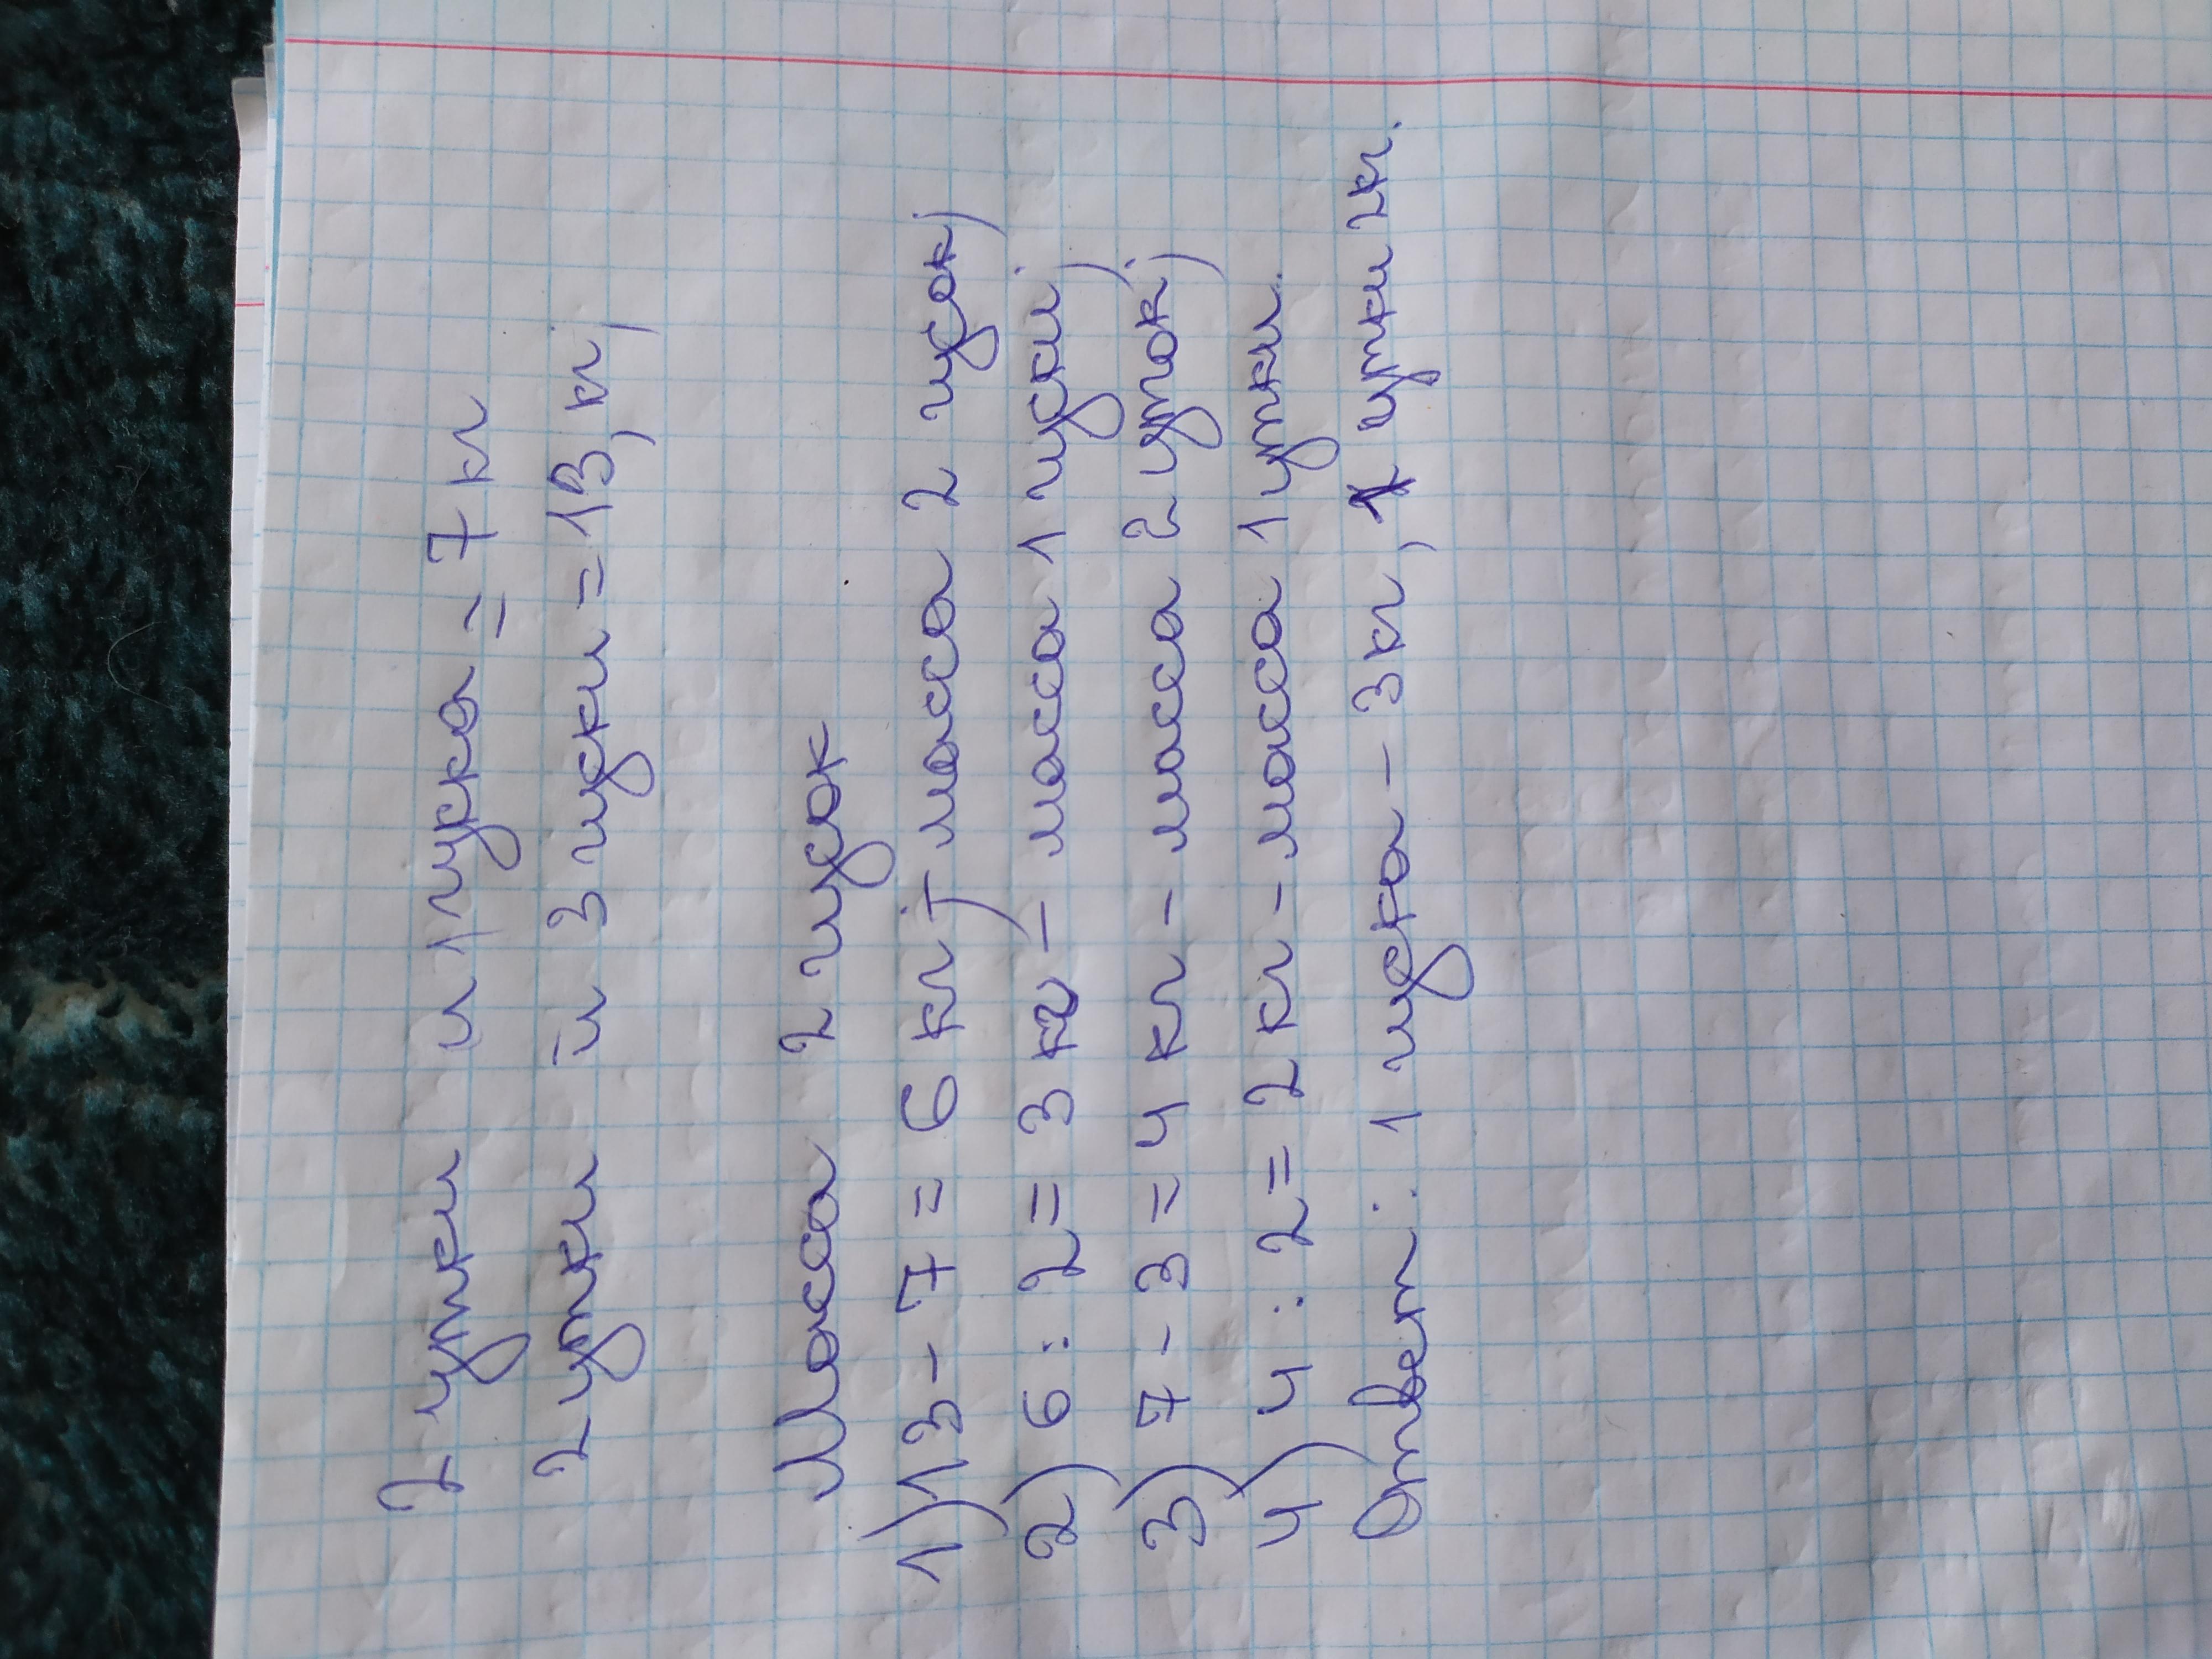 2 утки и 1 гуска = 7 кг
2 утки и 3 гуски = 13, кг,
Масса 2 гусок
1) 13 - 7 = 6 кг; - масса 2 гусок;
2) 6 : 2 = 3 кг - масса 1 гуски;
3) 7 - 3 = 4 кг - масса 2 уток;
4) 4 : 2 = 2 кг - масса 1 утки.
Ответ: 1 гуска - 3 кг, 1 утки 2кг.